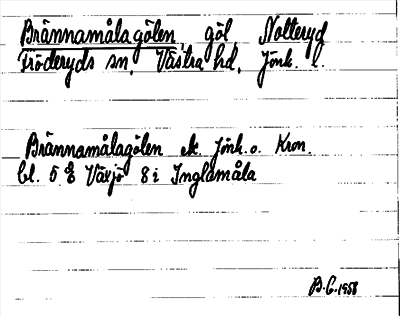 Brännamålagölen, göl Nolteryd
Fröderyds sn, Västra hd, Jönk. l.
Brännamålagölen ek. Jönk.o. Kron.
bl. 5 Växjö 8 i Inglamåla
B.G. 1958